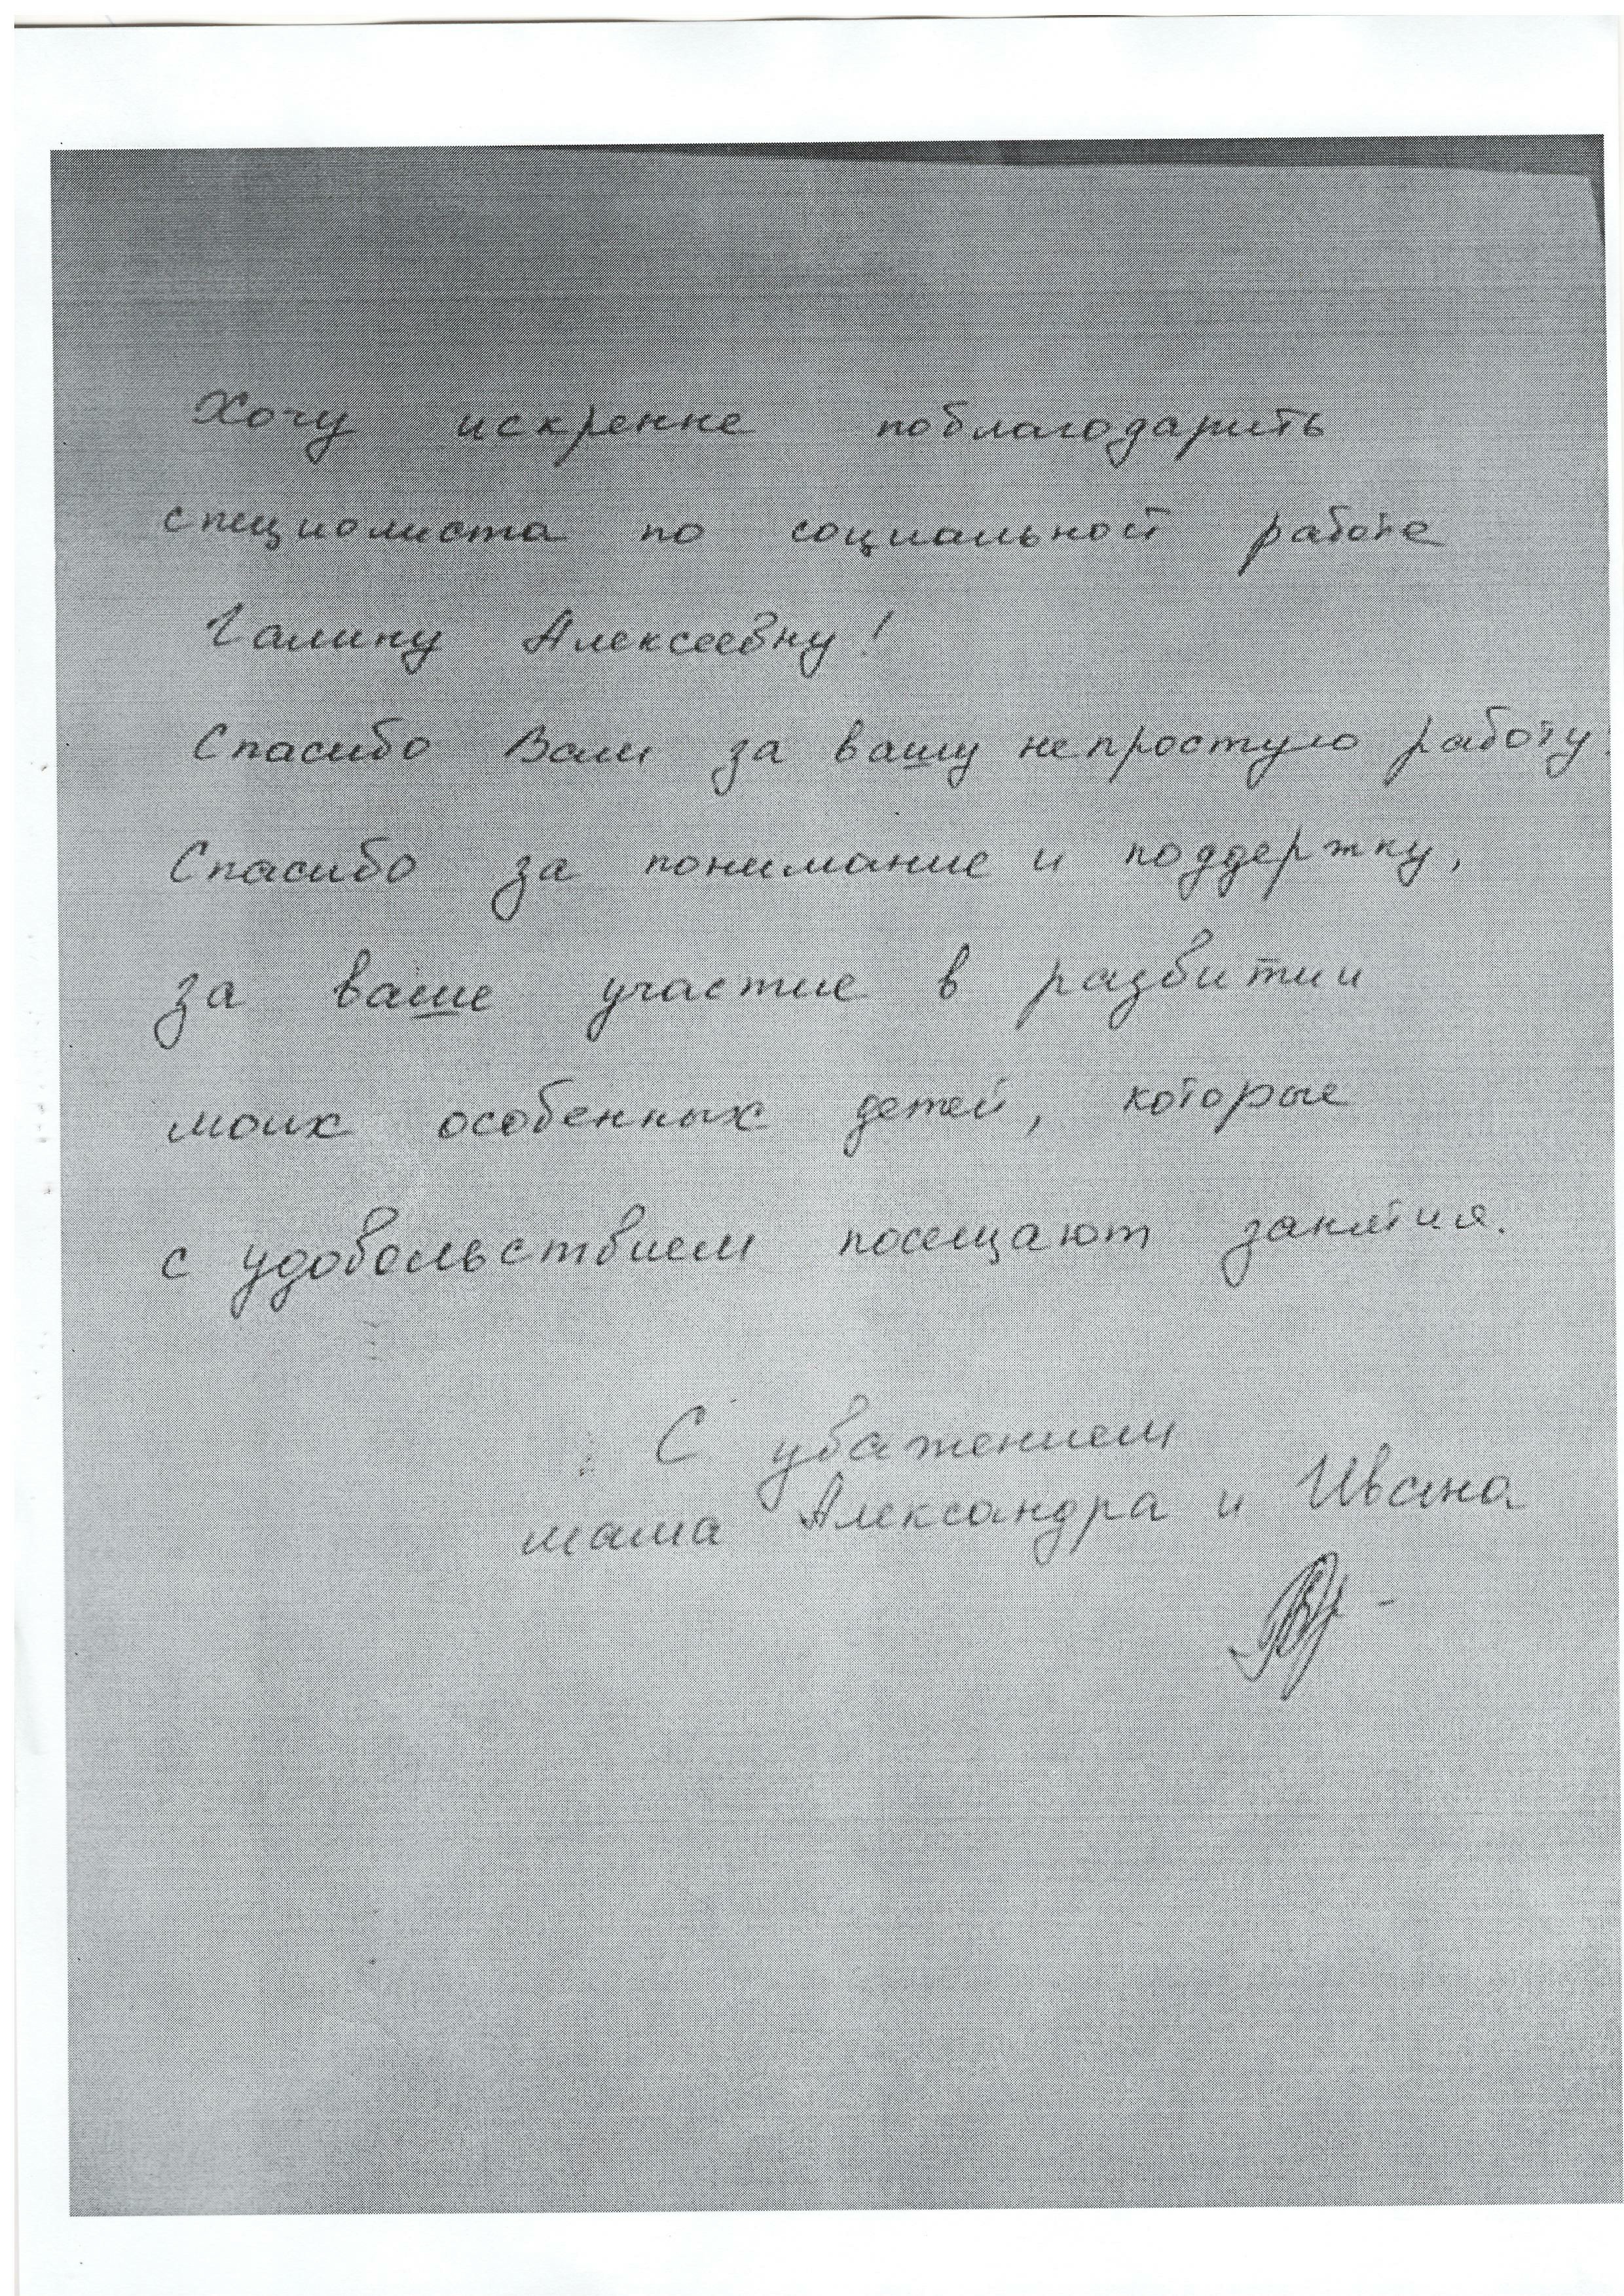 Хочу искренне поблагодарить
специалиста по социальной работе
Галину Алексеевну!
Спасибо Вам за вашу непростую работу!
Спасибо за понимание и поддержку,
за ваше участие в развитии
моих особенных детей, которые
с удовольствием посещают занятия.
С уважением
мама Александра и Ивана